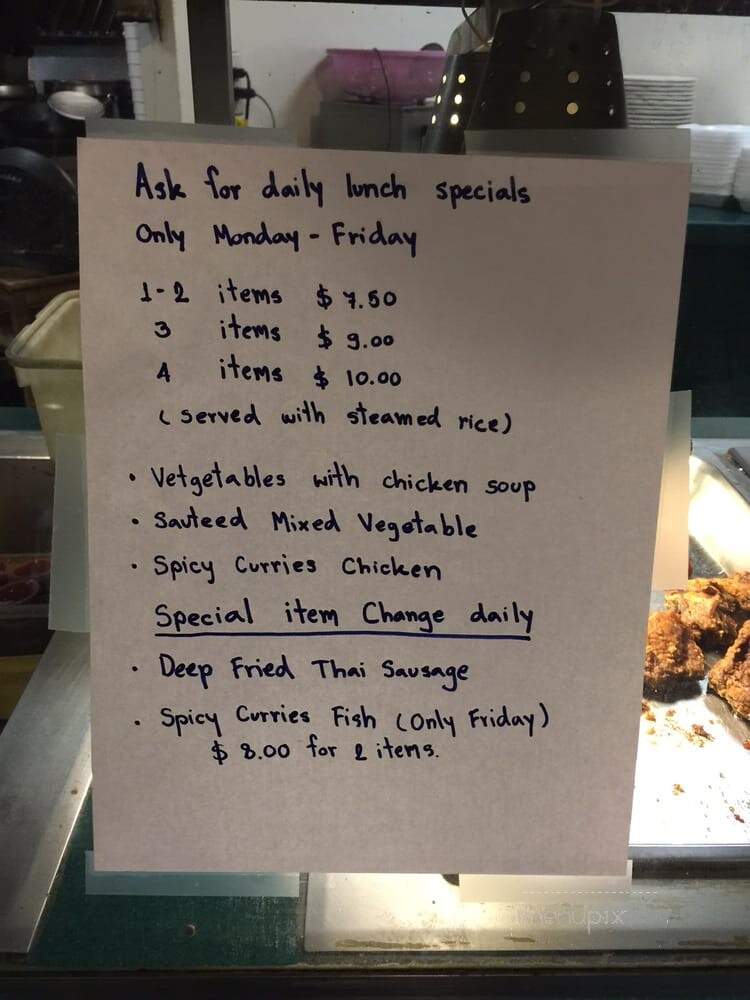 Ask for daily lunch specials
Only Monday - Friday
1-2 items $ 7.50
3 items $ 9.00
4 items $ 10.00
( served with steamed rice)
• Vetgetables with chicken soup
• Sauteed Mixed Vegetable
• Spicy Curries Chicken
Special item Change daily
• Deep Fried Thai Sausage
• Spicy Curries Fish (Only Friday)
$ 8.00 for 2 items.
menupix